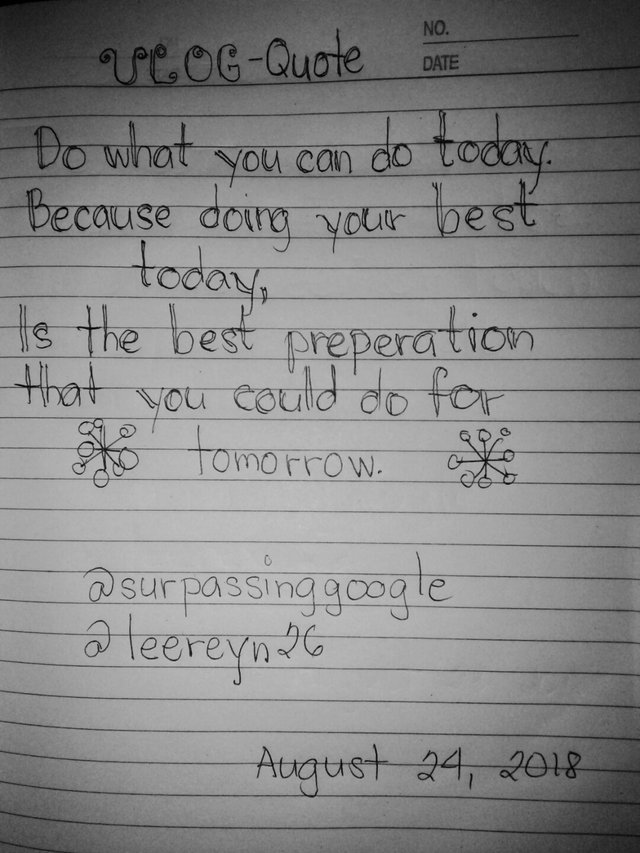 NO.
ULOG-Quote
DATE
Do what you can do today.
Because doing your best
today,
Is the best preperation
that you could do for
tomorrow.
@surpassinggoogle
@leereyn26
August 24, 2018